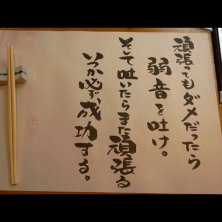 頑張ってもダメだったら
弱音を吐け。
そして吐いたらまた頑張る
いつか必ず成功する。